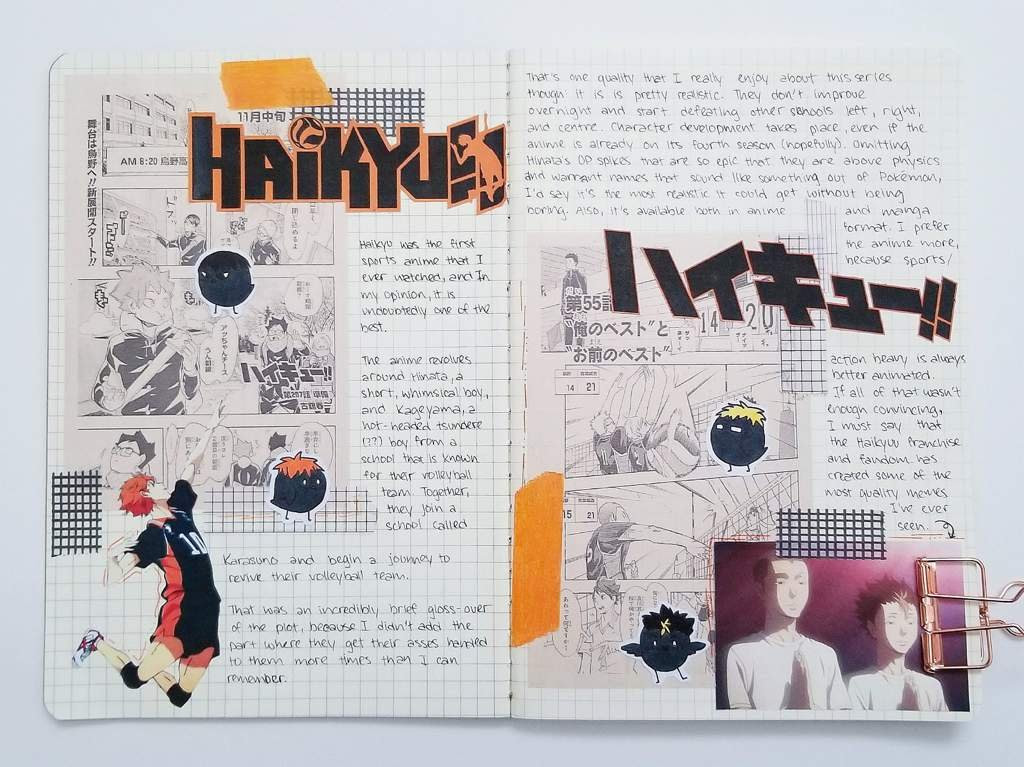 舞台は烏野へ!!新展開スタート!!
11月中旬
AM 8:20 烏野高
HAiKYU!!
ハイキュー!!
10
Haikyu was the first
sports anime that I
ever watched, and In
my opinion, it is
undoubtedly one of the
best.
The anime revolves
around Hinata, a
short, whimsical boy,
and Kageyama, a
hot-headed tsundere
(??) boy from a
school that is known
for their volleyball
team. Together,
they join a
school called
Karasuno and begin a journey to
revive their volleyball team.
That was an incredibly brief gloss-over
of the plot, because I didn't add the
part where they get their asses handed
to them more times than I can
remember.
That's one quality that I really enjoy about this series
though: it is is pretty realistic. They don't improve
overnight and start defeating other schools left, right,
and centre. Character development takes place, even if the
anime is already on its fourth season (hopefully). Omitting
Hinata's OP spikes that are so epic that they are above physics
and warrant names that sound like something out of Pokémon,
I'd say it's the most realistic it could get without being
boring. Also, it's available both in anime and manga
format. I prefer
the anime more,
because sports/
ハイキュー!!
第55話
"俺のベスト"と
"お前のベスト"
14 20
14 21
15 21
action heavy is always
better animated.
If all of that wasn't
enough convincing,
I must say that
the Haikyuu franchise
and fandom has
created some of the
most quality memes
I've ever
seen.